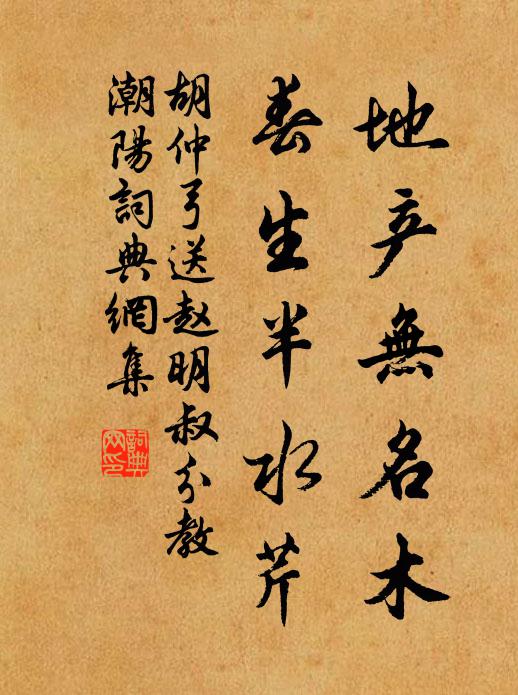 地产無名木
春生半水芹
胡仲弓送赵明叔分教
潮陽詞典網集
詞典
网印